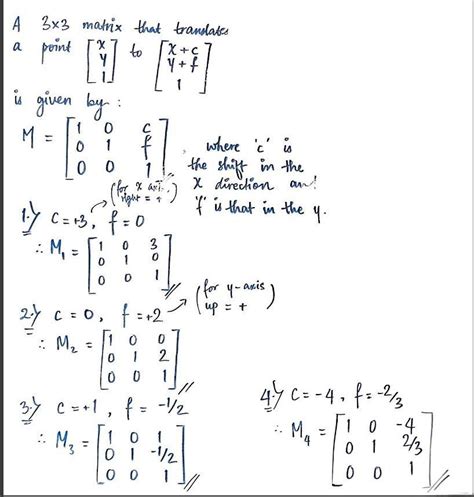 A 3×3 matrix that translates
a point [x y 1] to [x+c y+f 1]
is given by :
M = [1 0 c
0 1 f
0 0 1] , where 'c' is
the shift in the
x direction and
'f' is that in the y.
(for x axis
right = +)
1.) c = +3, f = 0
∴ M₁ = [1 0 3
0 1 0
0 0 1]
(for y-axis
up = +)
2.) c = 0, f = +2
∴ M₂ = [1 0 0
0 1 2
0 0 1]
3.) c = +1, f = -1/2
∴ M₃ = [1 0 1
0 1 -1/2
0 0 1]
4.) c = -4, f = -2/3
∴ M₄ = [1 0 -4
0 1 2/3
0 0 1]